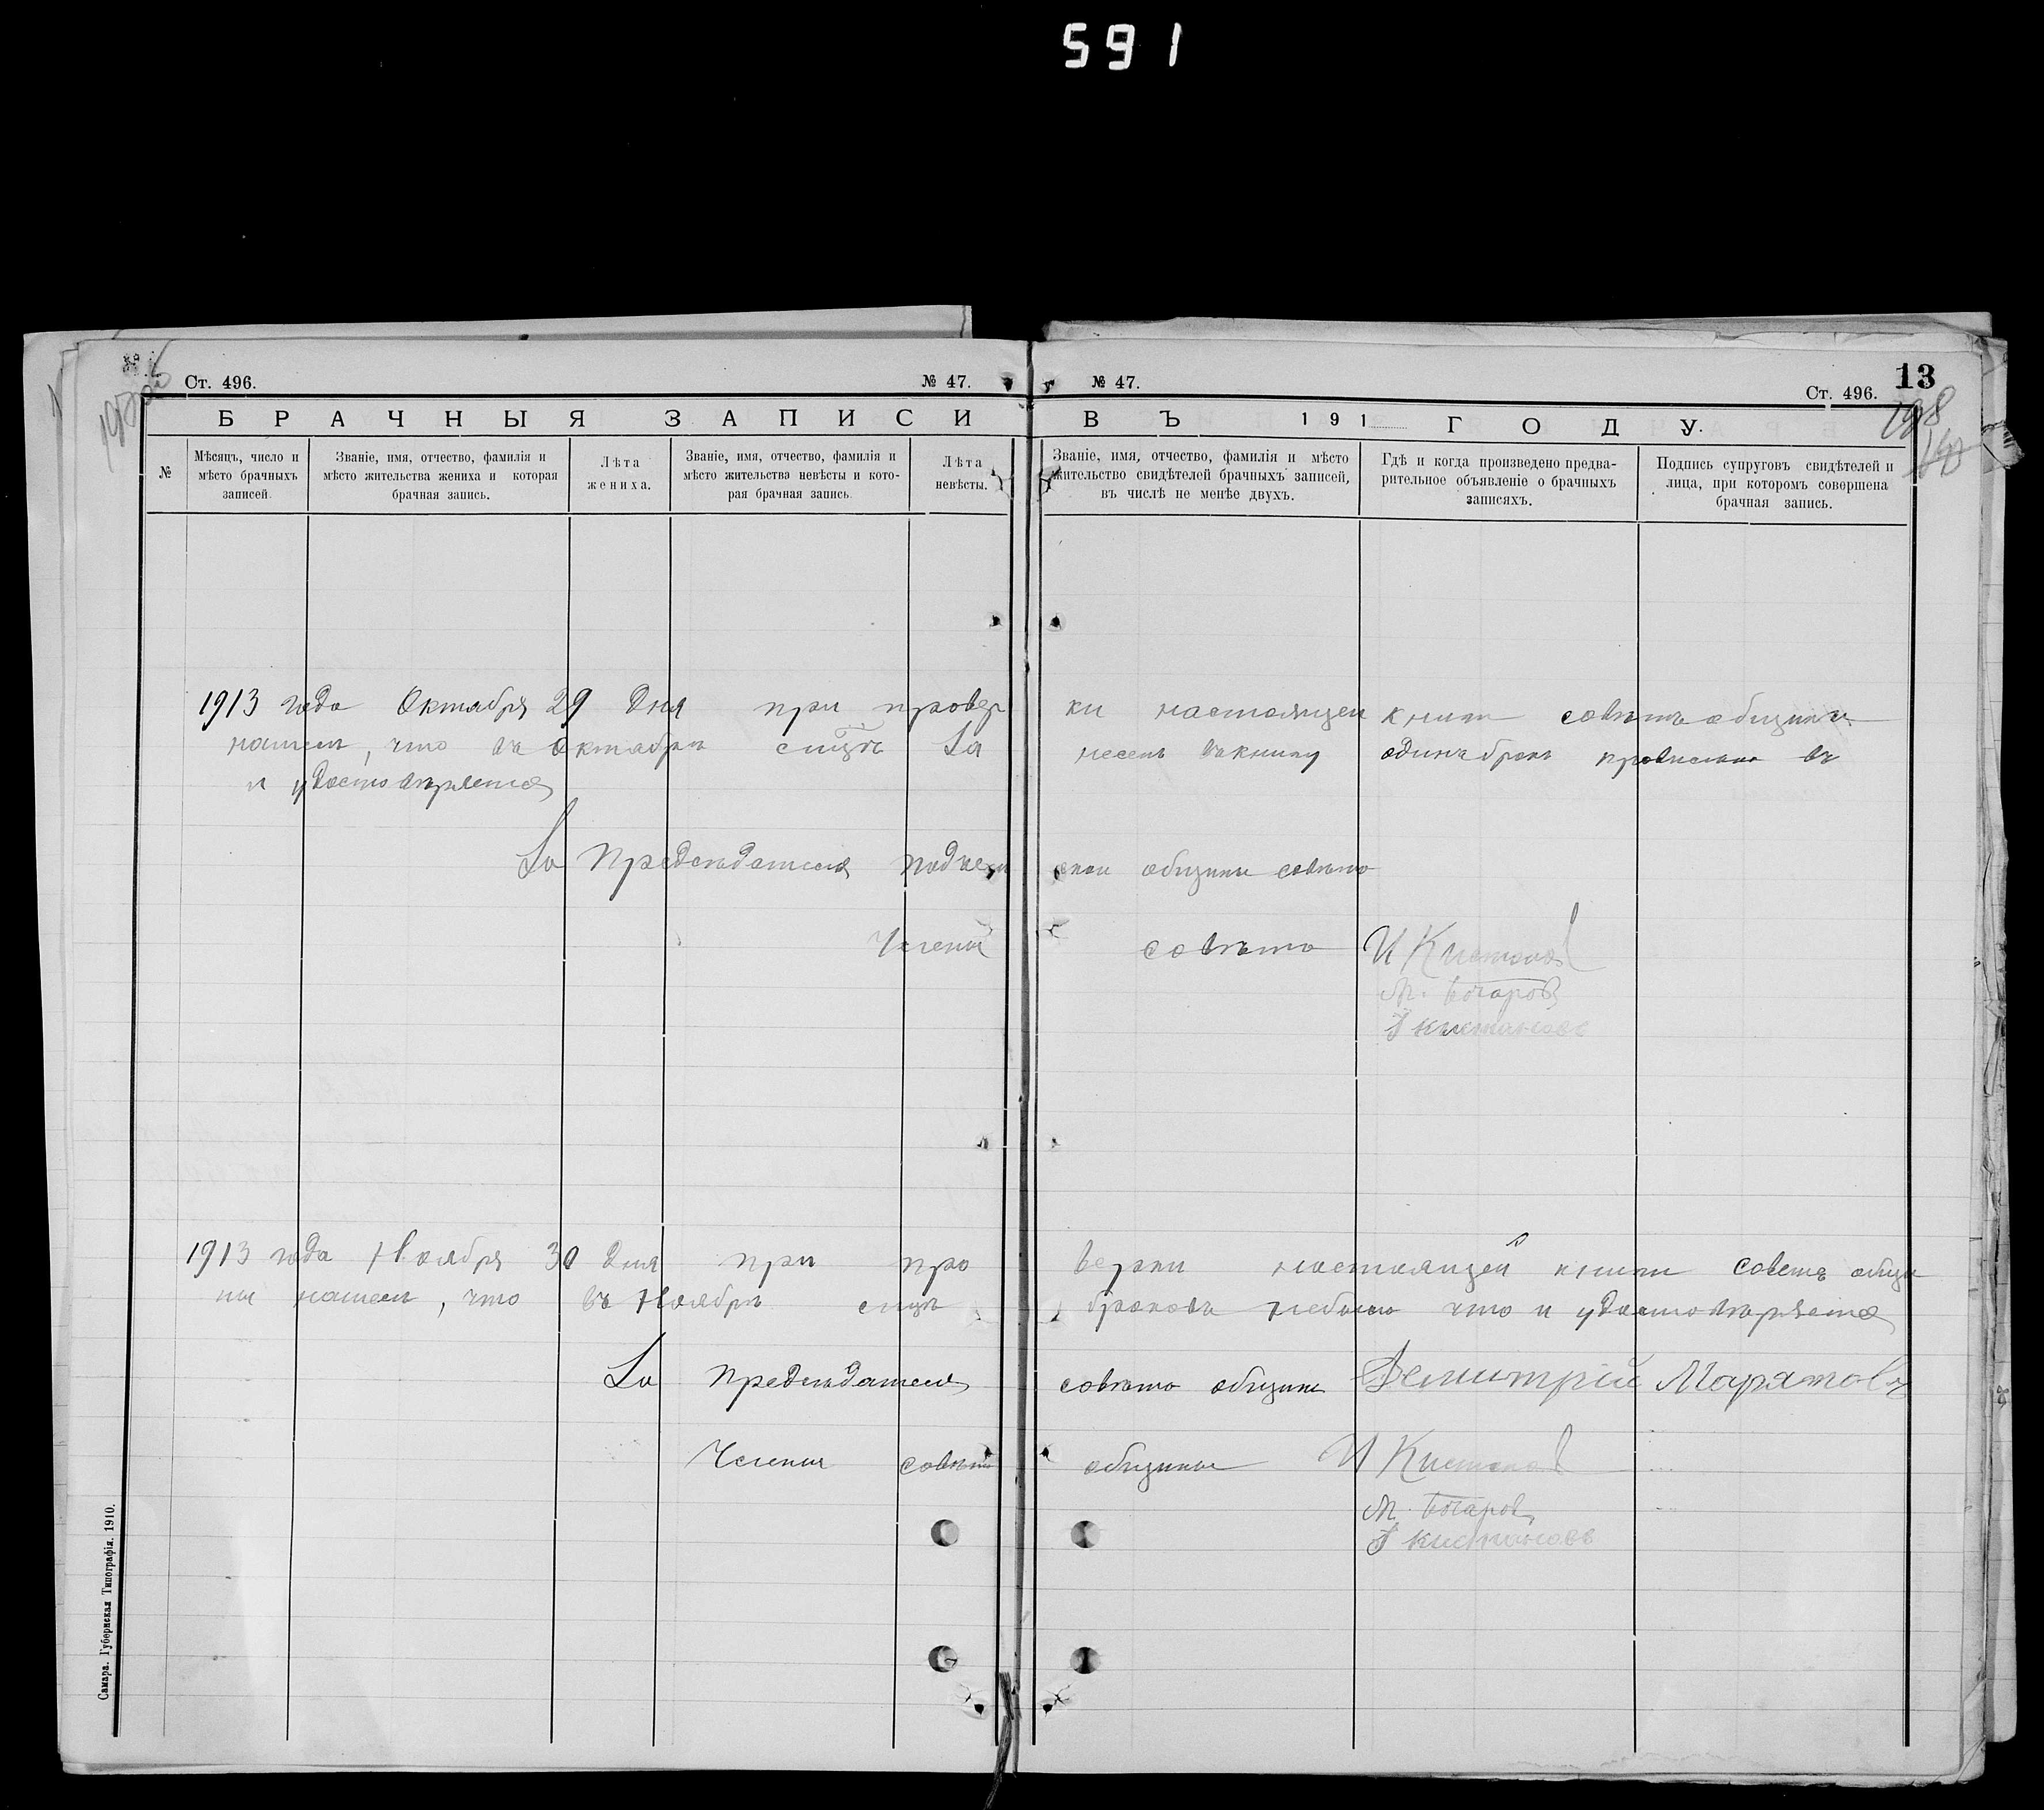 591
Ст. 496.
№ 47.
№ 47.
Ст. 496.
13
198
БРАЧНЫЯ ЗАПИСИ ВЪ 191 ГОДУ.
№
Мѣсяцъ, число и
мѣсто брачныхъ
записей.
Званіе, имя, отчество, фамилія и
мѣсто жительства жениха и которая
брачная запись.
Лѣта
жениха.
Званіе, имя, отчество, фамилія и
мѣсто жительства невѣсты и кото-
рая брачная запись.
Лѣта
невѣсты.
Званіе, имя, отчество, фамилія и мѣсто
жительство свидѣтелей брачныхъ записей,
въ числѣ не менѣе двухъ.
Гдѣ и когда произведено предва-
рительное объявленіе о брачныхъ
записяхъ.
Подпись супруговъ свидѣтелей и
лица, при которомъ совершена
брачная запись.
1913 года Октября 29 дня при провер ки настоящеи книги совѣтъ общины
нашел, что въ октябрѣ за несенъ въ книгу одинъ бракъ въ
и удостовѣряется
За Председателя общины совѣта
Члены совѣта И Кистанов
М. Бочаров
1913 года Ноября 30 дня при про верки настоящей книги Советъ общи
ны нашел, что въ Ноябрѣ браковъ небыло что и удостовѣряется
За председателя совѣта общины Демитрій Марятовъ
Члены совѣта общины И Кистанов
М. Бочаров
Кистановъ
Самара. Губернская Типографія. 1910.